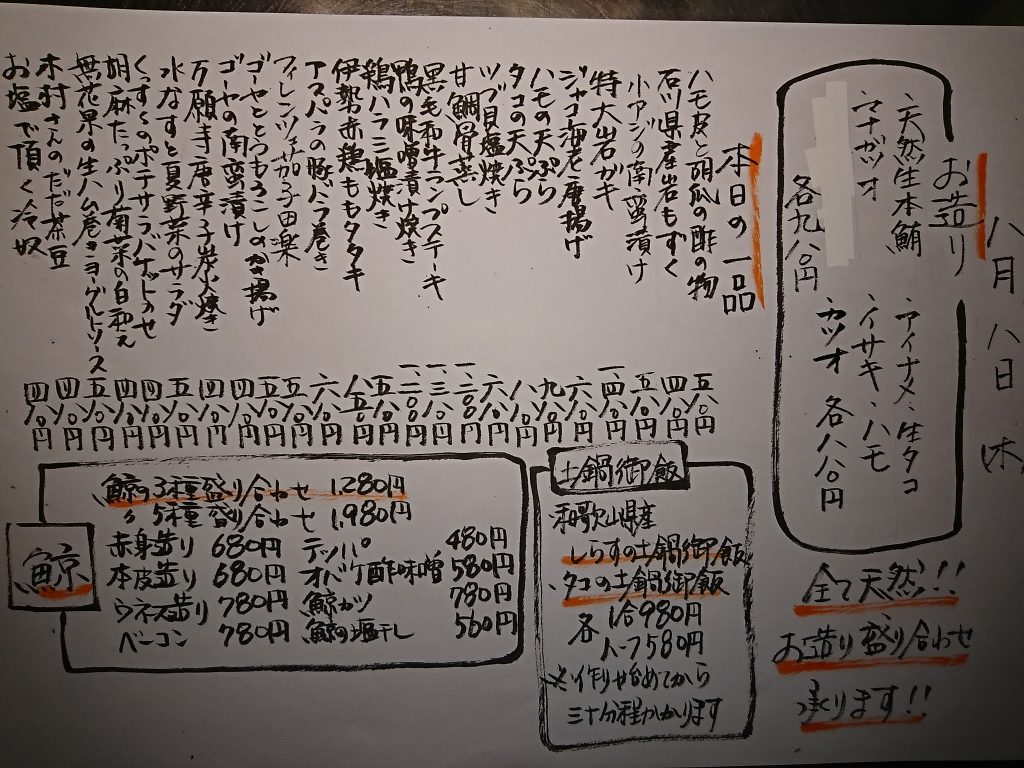 八月八日
お造り
・天然生本鮪
・マナガツオ
各九八〇円
・アイナメ・生タコ
・イサキ・ハモ
・カツオ 各八八〇円
全て天然!!
お造り盛り合わせ
承ります!!
本日の一品
ハモ皮と胡瓜の酢の物 五八〇円
石川県産岩もずく 四八〇円
小アジの南蛮漬け 五八〇円
特大岩ガキ 一、四八〇円
ジャコ海老唐揚げ 六八〇円
ハモの天ぷら 九八〇円
タコの天ぷら 八八〇円
ツブ貝塩焼き 六八〇円
甘鯛骨蒸し
黒毛和牛ランプステーキ 一、三八〇円
鴨の味噌漬け焼き
鶏ハラミ塩焼き 五八〇円
伊勢赤鶏ももタタキ 八五〇円
アスパラの豚バラ巻き 六八〇円
フィレンツェ茄子田楽 五八〇円
ゴーヤととうもろこしのかき揚げ 五八〇円
ゴーヤの南蛮漬け 四八〇円
万願寺唐辛子炭火焼き 四八〇円
水なすと夏野菜のサラダ 五八〇円
ポテサラバケットのせ 四八〇円
胡麻たっぷり 白和え 四八〇円
無花果の生ハム巻きヨーグルトソース 五八〇円
木村さんのだだ茶豆 四八〇円
お塩で頂く冷奴 四八〇円
土鍋御飯
・和歌山県産
しらすの土鍋御飯
・タコの土鍋御飯
各 1合980円
ハーフ580円
※作り始めてから
三十分程かかります
鯨
鯨の3種盛り合わせ 1,280円
〃 5種盛り合わせ 1,980円
赤身造り 680円
本皮造り 680円
ウネス造り 780円
ベーコン 780円
テッパ 480円
オバケ酢味噌 580円
鯨カツ 780円
鯨の塩干し 560円